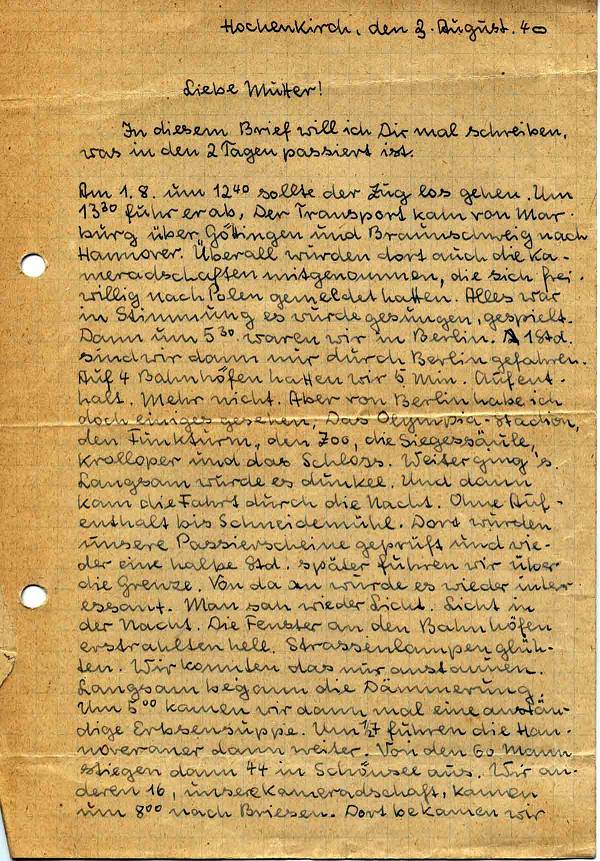 Hochenkirch, den 3. August. 40
Liebe Mutter!
In diesem Brief will ich Dir mal schreiben,
was in den 2 Tagen passiert ist.
Am 1.8. um 12⁴⁰ sollte der Zug los gehen. Um
13³⁰ fuhr er ab, Der Transport kam von Mar-
burg über Göttingen und Braunschweig nach
Hannover. Überall wurden dort auch die Ka-
meradschaften mitgenommen, die sich frei-
willig nach Polen gemeldet hatten. Alles war
in Stimmung es wurde gesungen, gespielt.
Dann um 5³⁰ waren wir in Berlin. 1 Std.
sind wir dann nur durch Berlin gefahren.
Auf 4 Bahnhöfen hatten wir 5 Min. Aufent-
halt. Mehr nicht. Aber von Berlin habe ich
doch einiges gesehen, Das Olympia-Stadion,
den Funkturm, den Zoo, die Siegessäule,
Krolloper und das Schloss. Weiter ging's.
Langsam wurde es dunkel. Und dann
kam die Fahrt durch die Nacht. Ohne Auf-
enthalt bis Schneidemühl. Dort wurden
unsere Passierscheine geprüft und wie-
der eine halbe Std. später fuhren wir über
die Grenze. Von da an wurde es wieder inter-
essant. Man sah wieder Licht. Licht in
der Nacht. Die Fenster an den Bahnhöfen
erstrahlten hell. Strassenlampen glüh-
ten. Wir konnten das nur anstaunen.
Langsam begann die Dämmerung.
Um 5⁰⁰ kamen wir dann mal eine anstän-
dige Erbsensuppe. Um ½7 fuhren die Han-
noveraner dann weiter. Von den 60 Mann
stiegen dann 44 in Schönsee aus. Wir an-
deren 16, unsere Kameradschaft, kamen
um 8⁰⁰ nach Briesen. Dort bekamen wir